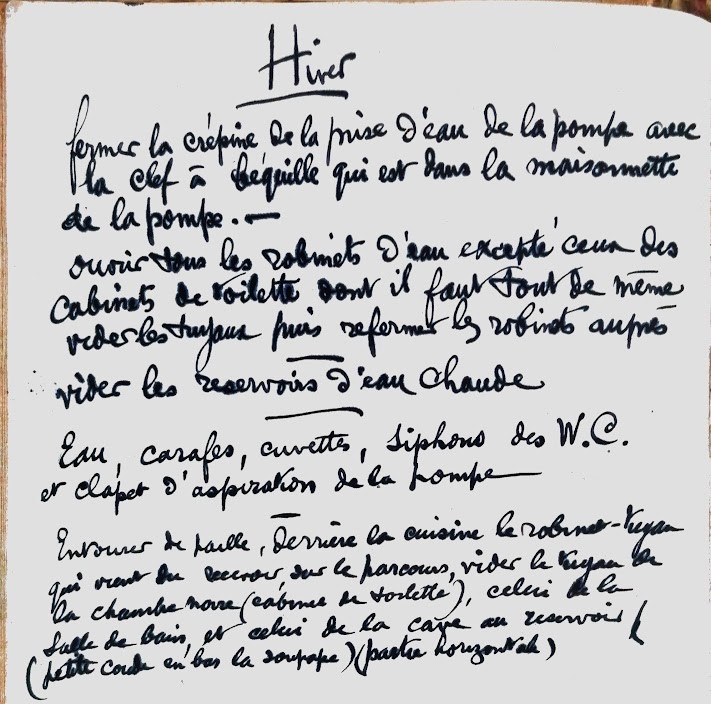 Hiver
fermer la crépine de la prise d'eau de la pompe avec
la clef à béquille qui est dans la maisonnette
de la pompe. —
ouvrir tous les robinets d'eau excepté ceux des
cabinets de toilette dont il faut tout de même
vider les tuyaux puis refermer les robinets auprès
vider les reservoirs d'eau chaude
Eau, carafes, cuvettes, siphons des W.C.
et clapet d'aspiration de la pompe
Entourer de paille, derrière la cuisine le robinet-tuyau
qui vient du reservoir sur le parcours, vider le tuyau de
la chambre noire (cabinet de toilette), celui de la
Salle de bain, et celui de la cave au reservoir
(petite corde en bas la soupape) (partie horizontale)